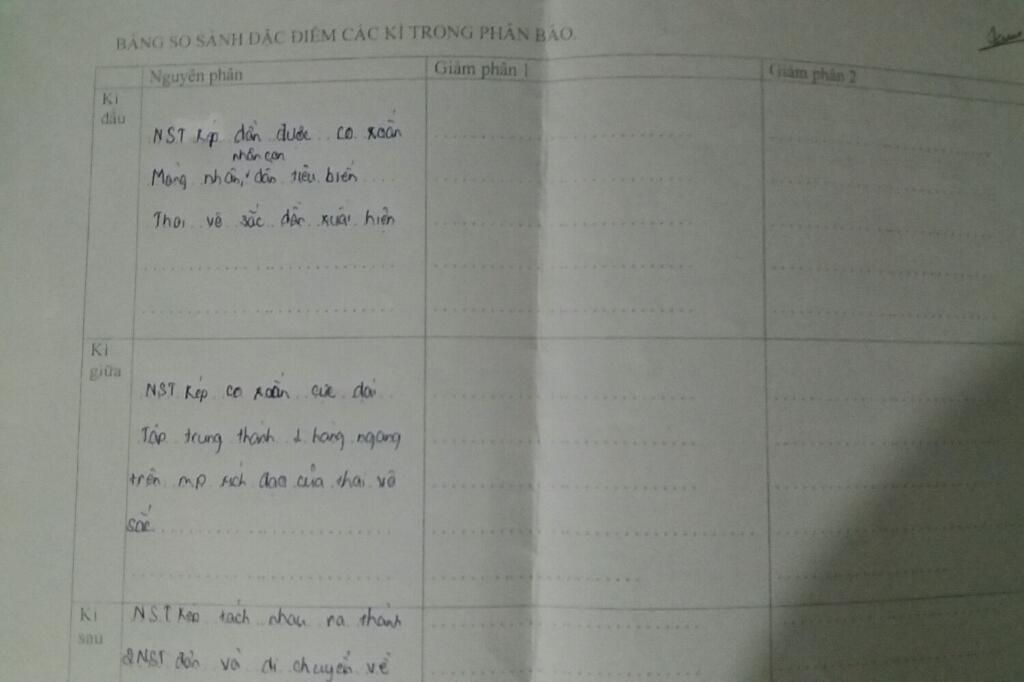 BẢNG SO SÁNH ĐẶC ĐIỂM CÁC KÌ TRONG PHÂN BÀO.
Nguyên phân Giảm phân 1 Giảm phân 2
Kì
đầu
NST kép dần được co xoắn
nhân con
Màng nhân, dần tiêu biến
Thoi vô sắc dần xuất hiện
Kì
giữa
NST kép co xoắn cực đại
Tập trung thành 1 hàng ngang
trên mp xích đạo của thai vô
sắc
Kì
sau
NST kép tách nhau ra thành
2NST đơn và di chuyển về